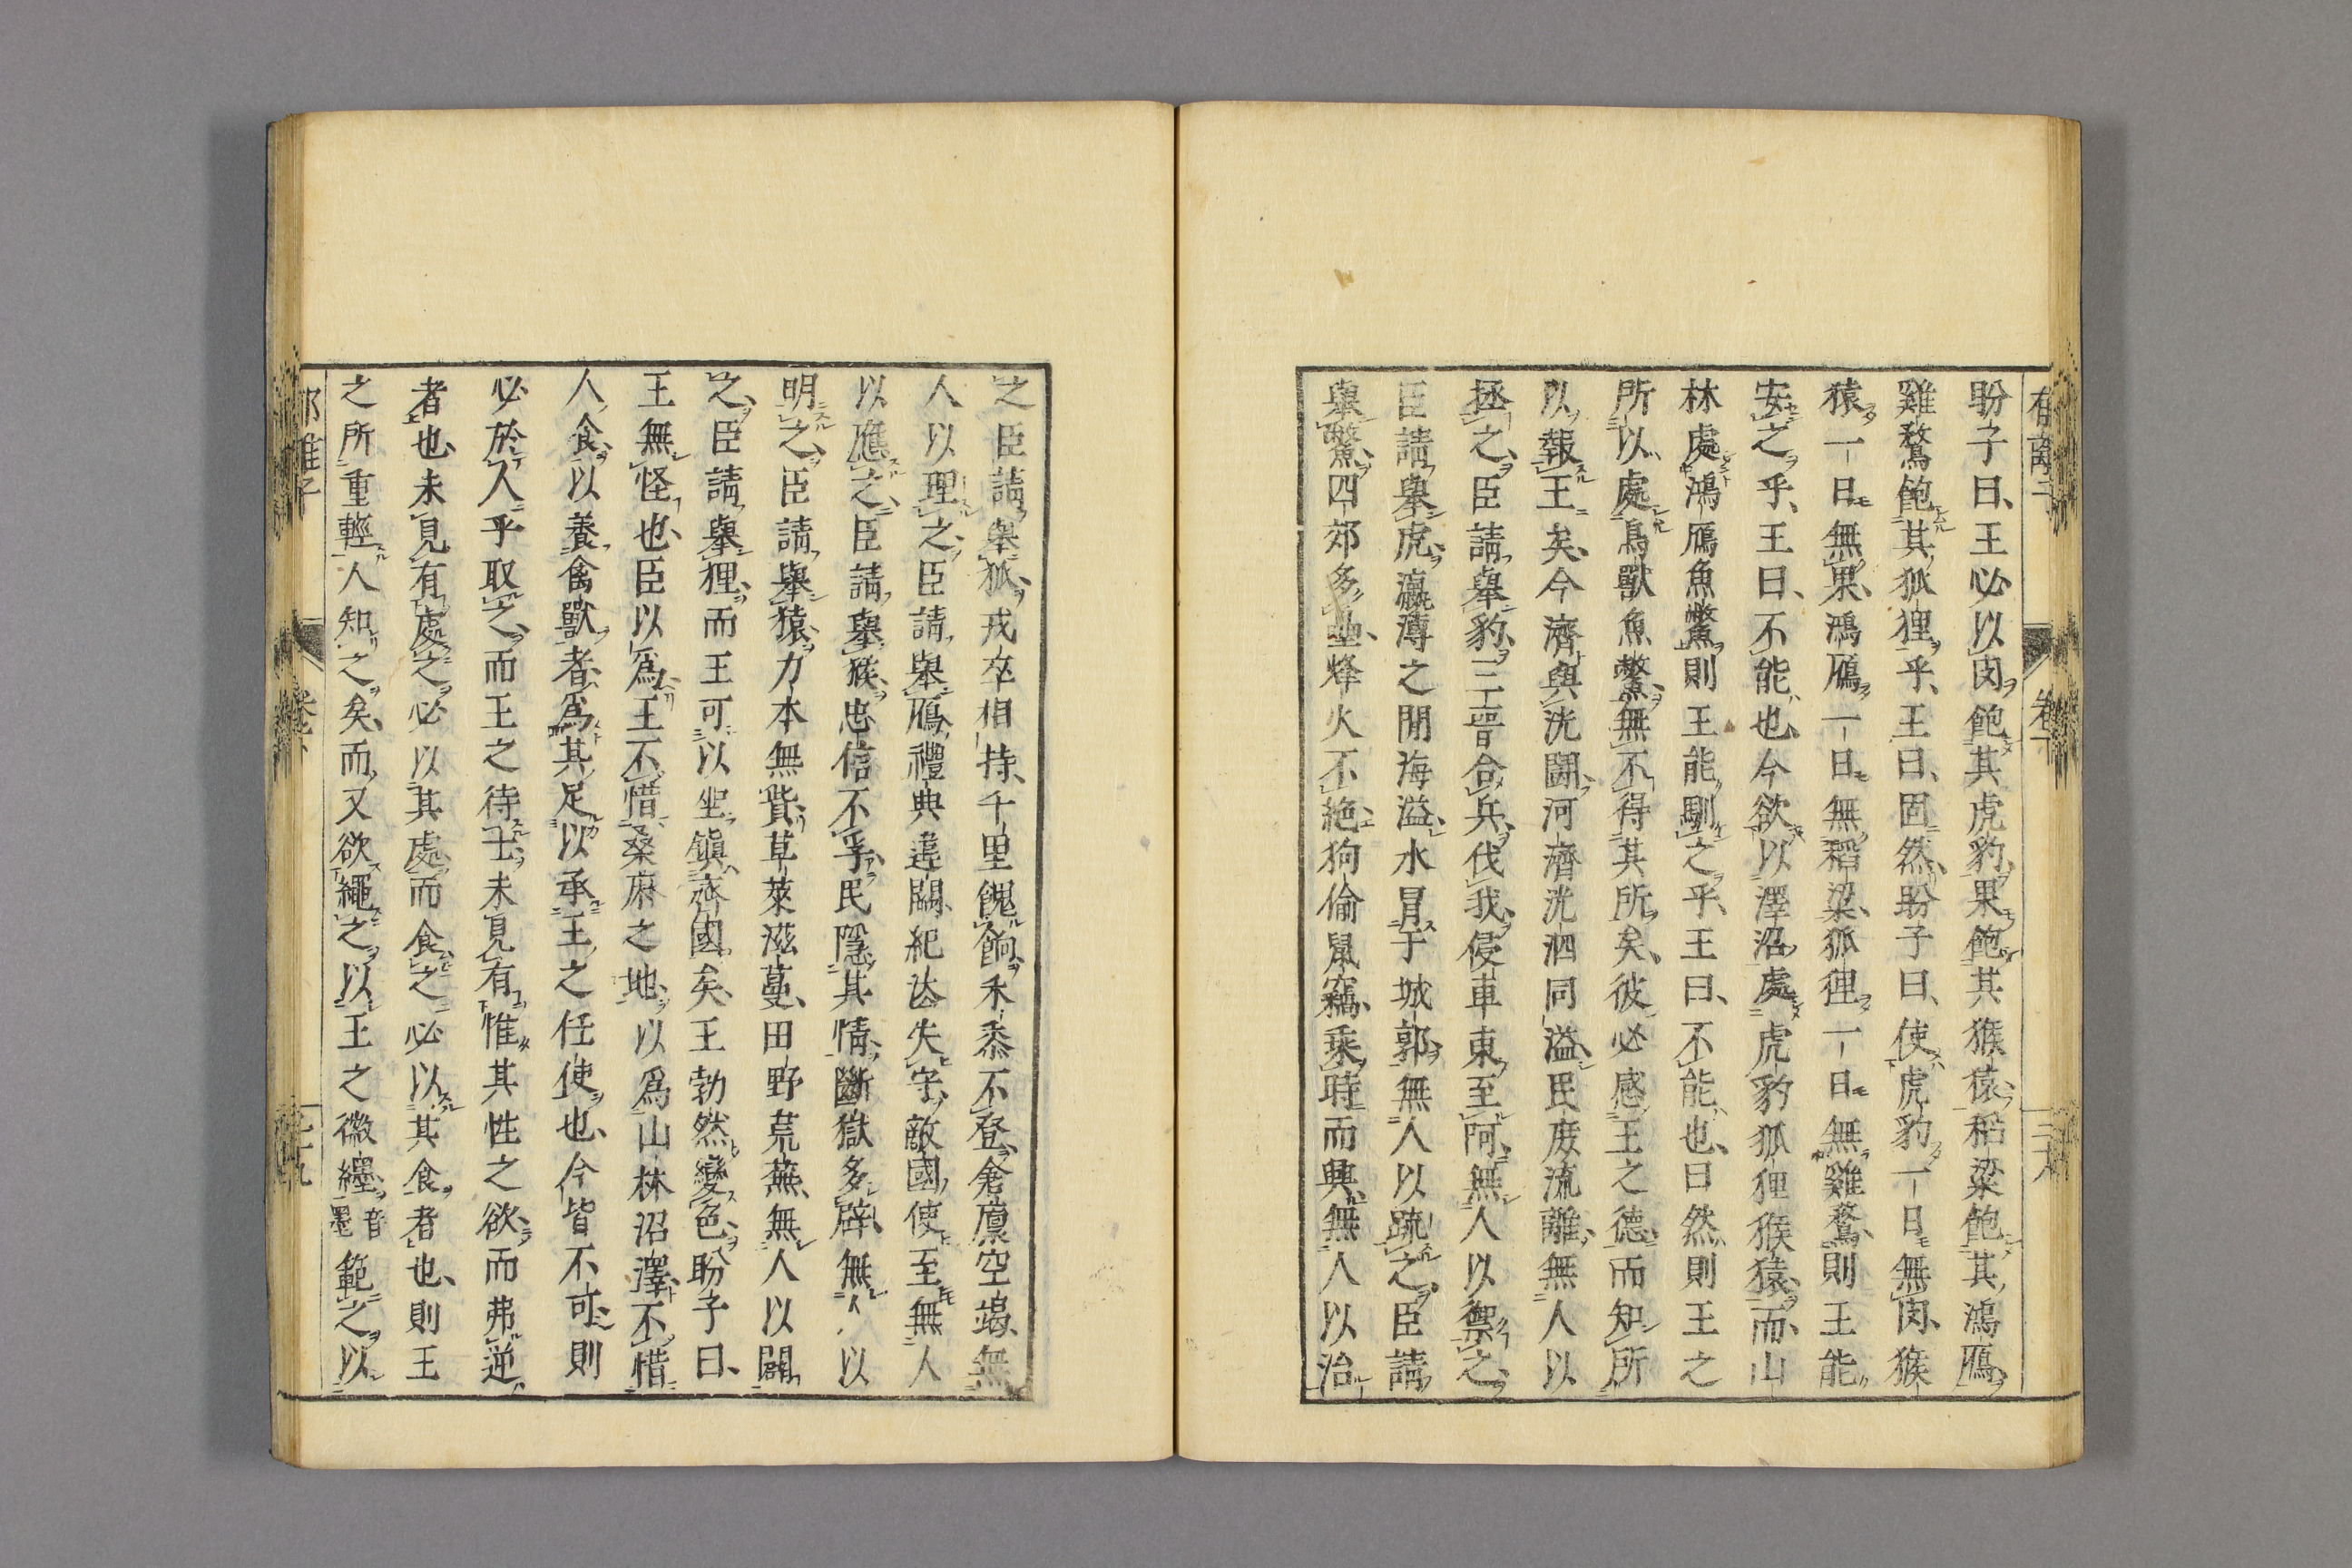 盼子曰、王必以肉飽其虎豹、果飽其猴猿、稻粱飽其鴻鴈、
雞鶩飽其狐狸乎、王曰、固然、盼子曰、使虎豹一日無肉、猴
猿一日無果、鴻鴈一日無稻粱、狐狸一日無雞鶩、則王能
安之乎、王曰、不能也、今欲以澤沼處虎豹狐狸猴猿、而山
林處鴻鴈魚鱉、則王能馴之乎、王曰、不能也、曰然則王之
所以處鳥獸魚鱉、無不得其所矣、彼必感王之德、而知所
以報王矣、今濟與洸鬪、河濟洸泗同溢、民庶流離、無人以
拯之、臣請舉豹、三晉合兵、伐我、侵車東至阿、無人以禦之、
臣請舉虎、瀛薄之閒海溢、水冒于城郭、無人以疏之、臣請
舉鱉、四郊多壘、烽火不絶、狗偷鼠竊、乘時而興、無人以治
郁離子 卷下
之臣請舉狐、戎卒相持、千里餽餉、禾黍不登、倉廩空竭、無
人以理之、臣請舉鴈、禮典違闕、紀法失守、敵國使至、無人
以應之、臣請舉猴、忠信不孚、民隱其情、斷獄多辟、無人以
明之、臣請舉猿、力本無貲、草萊滋蔓、田野荒蕪、無人以闢
之、臣請舉狸、而王可以坐鎮齊國矣、王勃然變色、盼子曰、
王無怪也、臣以爲王不惜桑麻之地、以爲山林沼澤、不惜
人食、以養禽獸者、爲其足以承王之任使也、今皆不可、則
必於人乎取之、而王之待士、未見有惟其性之欲、而弗逆
者也、未見有處之必以其處、而食之必以其食者也、則王
之所重輕人知之矣、而又欲繩之以王之徽纆音墨範之以
郁離子 卷下